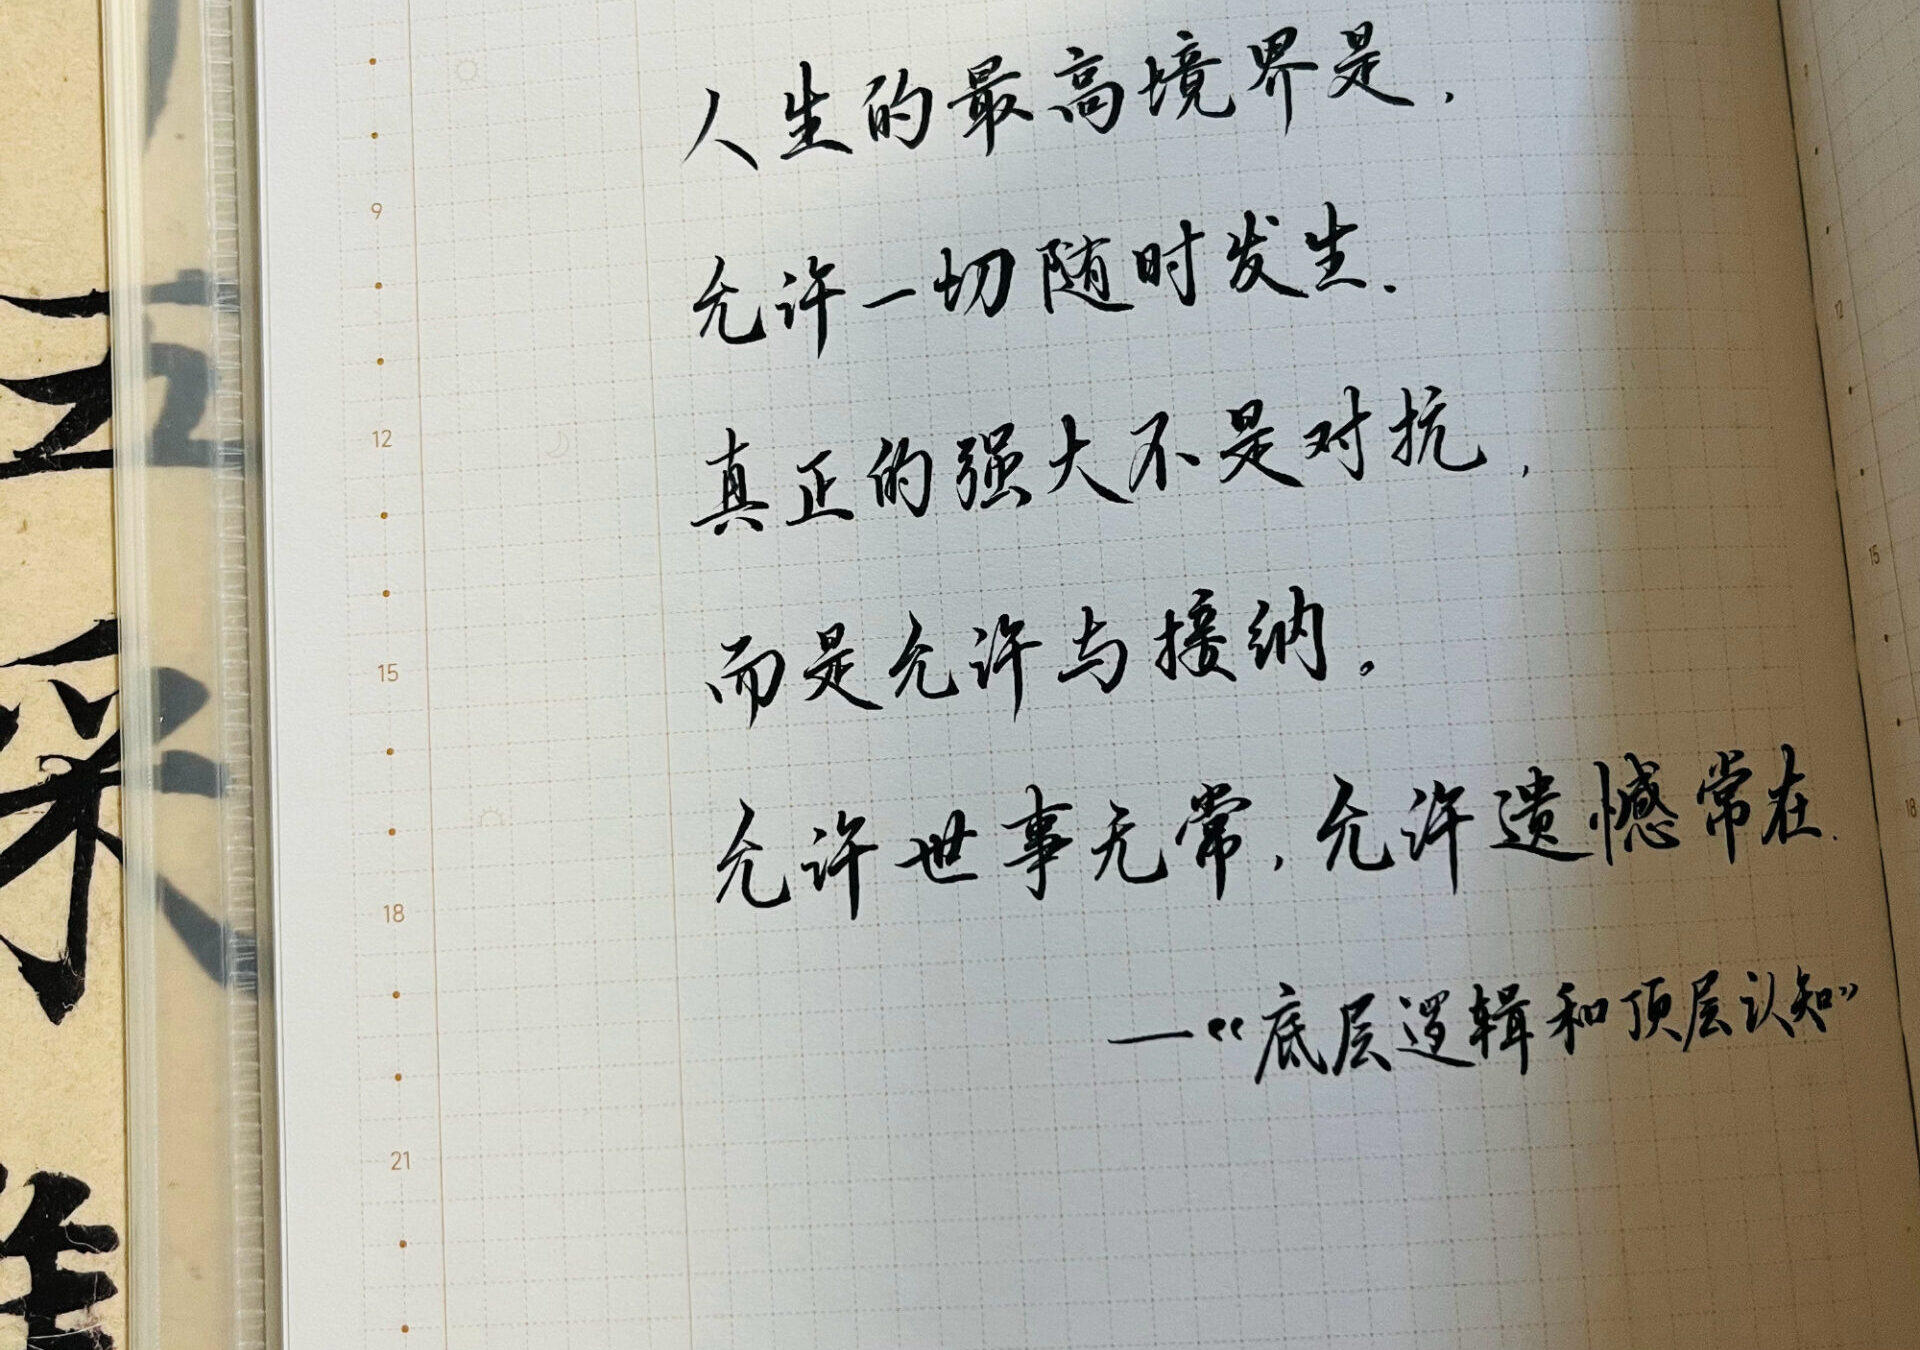 人生的最高境界是,
允许一切随时发生.
真正的强大不是对抗,
而是允许与接纳。
允许世事无常,允许遗憾常在.
—“底层逻辑和顶层认知”
9
12
15
18
21
12
15
18
五
采